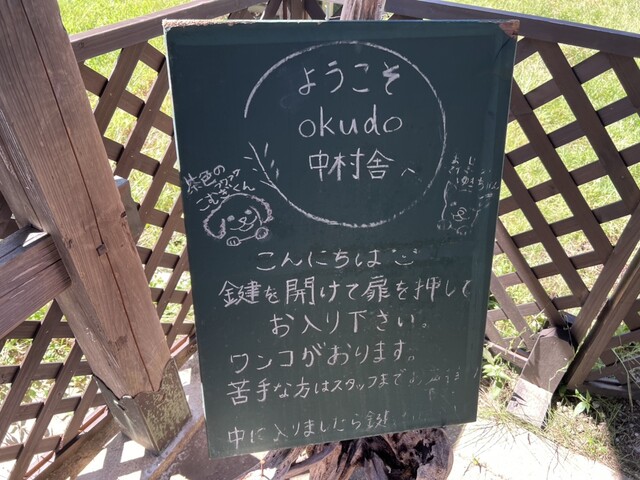 ようこそ
okudo
中村舎へ
茶色の
フワフワ
こむぎくん
ゆきちゃん
こんにちは
鍵を開けて扉を押して
お入り下さい。
ワンコがおります。
苦手な方はスタッフまで
中に入りましたら鍵